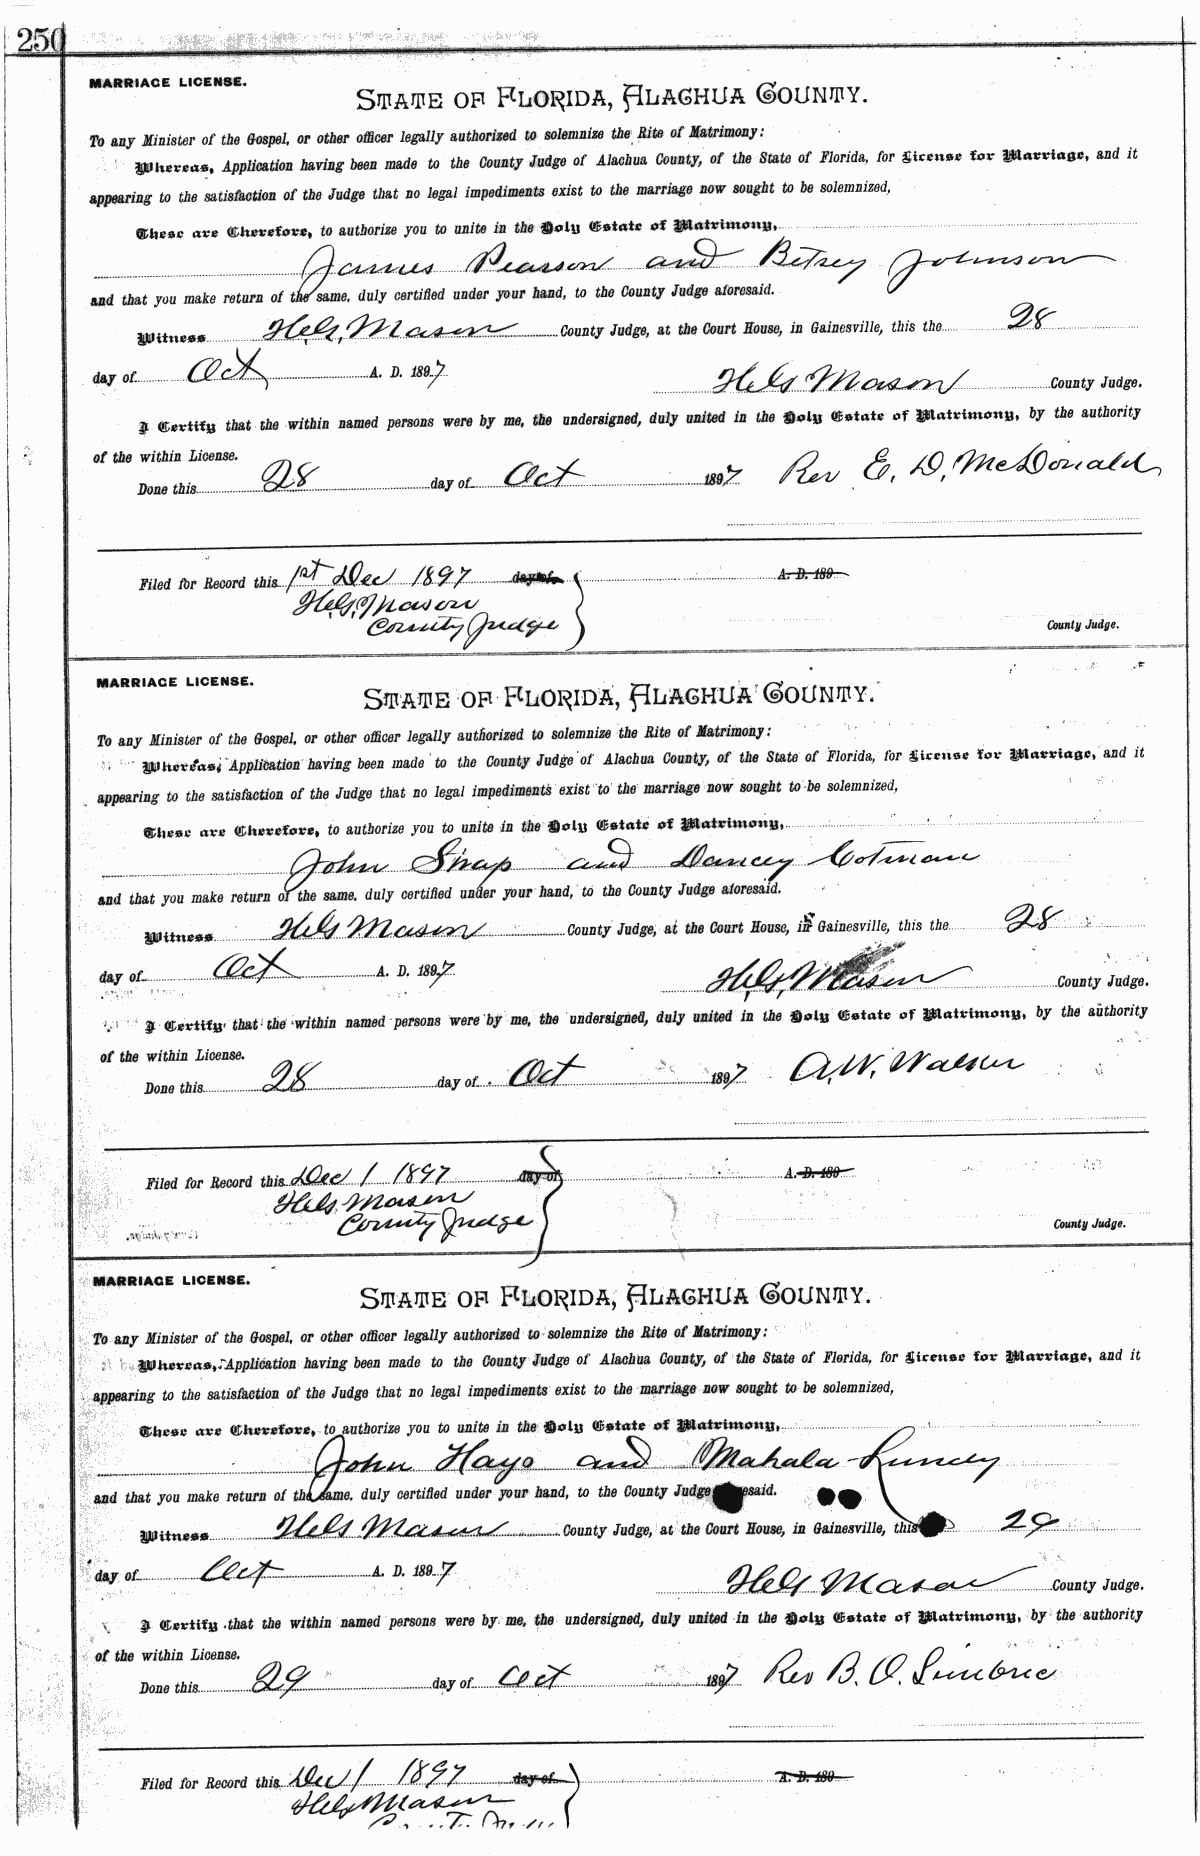 250
MARRIAGE LICENSE.
STATE OF FLORIDA, ALACHUA COUNTY.
To any Minister of the Gospel, or other officer legally authorized to solemnize the Rite of Matrimony:
Whereas, Application having been made to the County Judge of Alachua County, of the State of Florida, for License for Marriage, and it
appearing to the satisfaction of the Judge that no legal impediments exist to the marriage now sought to be solemnized,
These are Therefore, to authorize you to unite in the Holy Estate of Matrimony,
James Pearson and Betsey Johnson
and that you make return of the same, duly certified under your hand, to the County Judge aforesaid.
Witness H.G. Mason County Judge, at the Court House, in Gainesville, this the 28
day of Oct A. D. 1897
H.G. Mason County Judge.
I Certify that the within named persons were by me, the undersigned, duly united in the Holy Estate of Matrimony, by the authority
of the within License.
Done this 28 day of Oct 1897 Rev E. D. McDonald
Filed for Record this 1st Dec 1897 day of A. D. 189
H.G. Mason
County Judge County Judge.
MARRIAGE LICENSE.
STATE OF FLORIDA, ALACHUA COUNTY.
To any Minister of the Gospel, or other officer legally authorized to solemnize the Rite of Matrimony:
Whereas, Application having been made to the County Judge of Alachua County, of the State of Florida, for License for Marriage, and it
appearing to the satisfaction of the Judge that no legal impediments exist to the marriage now sought to be solemnized,
These are Therefore, to authorize you to unite in the Holy Estate of Matrimony,
John and Dancey Cotman
and that you make return of the same, duly certified under your hand, to the County Judge aforesaid.
Witness H.G. Mason County Judge, at the Court House, in Gainesville, this the 28
day of Oct A. D. 1897
H.G. Mason County Judge.
I Certify that the within named persons were by me, the undersigned, duly united in the Holy Estate of Matrimony, by the authority
of the within License.
Done this 28 day of Oct 1897 A. W. Walker
Filed for Record this Dec 1 1897 day of A. D. 189
H.G. Mason
County Judge County Judge.
MARRIAGE LICENSE.
STATE OF FLORIDA, ALACHUA COUNTY.
To any Minister of the Gospel, or other officer legally authorized to solemnize the Rite of Matrimony:
Whereas, Application having been made to the County Judge of Alachua County, of the State of Florida, for License for Marriage, and it
appearing to the satisfaction of the Judge that no legal impediments exist to the marriage now sought to be solemnized,
These are Therefore, to authorize you to unite in the Holy Estate of Matrimony,
John Hayo and Mahala
and that you make return of the same, duly certified under your hand, to the County Judge
Witness H.G. Mason County Judge, at the Court House, in Gainesville, this 29
day of Oct A. D. 1897
H.G. Mason County Judge.
I Certify that the within named persons were by me, the undersigned, duly united in the Holy Estate of Matrimony, by the authority
of the within License.
Done this 29 day of Oct 1897 Rev B. O.
Filed for Record this Dec 1 1897 day of A. D. 189
H.G. Mason